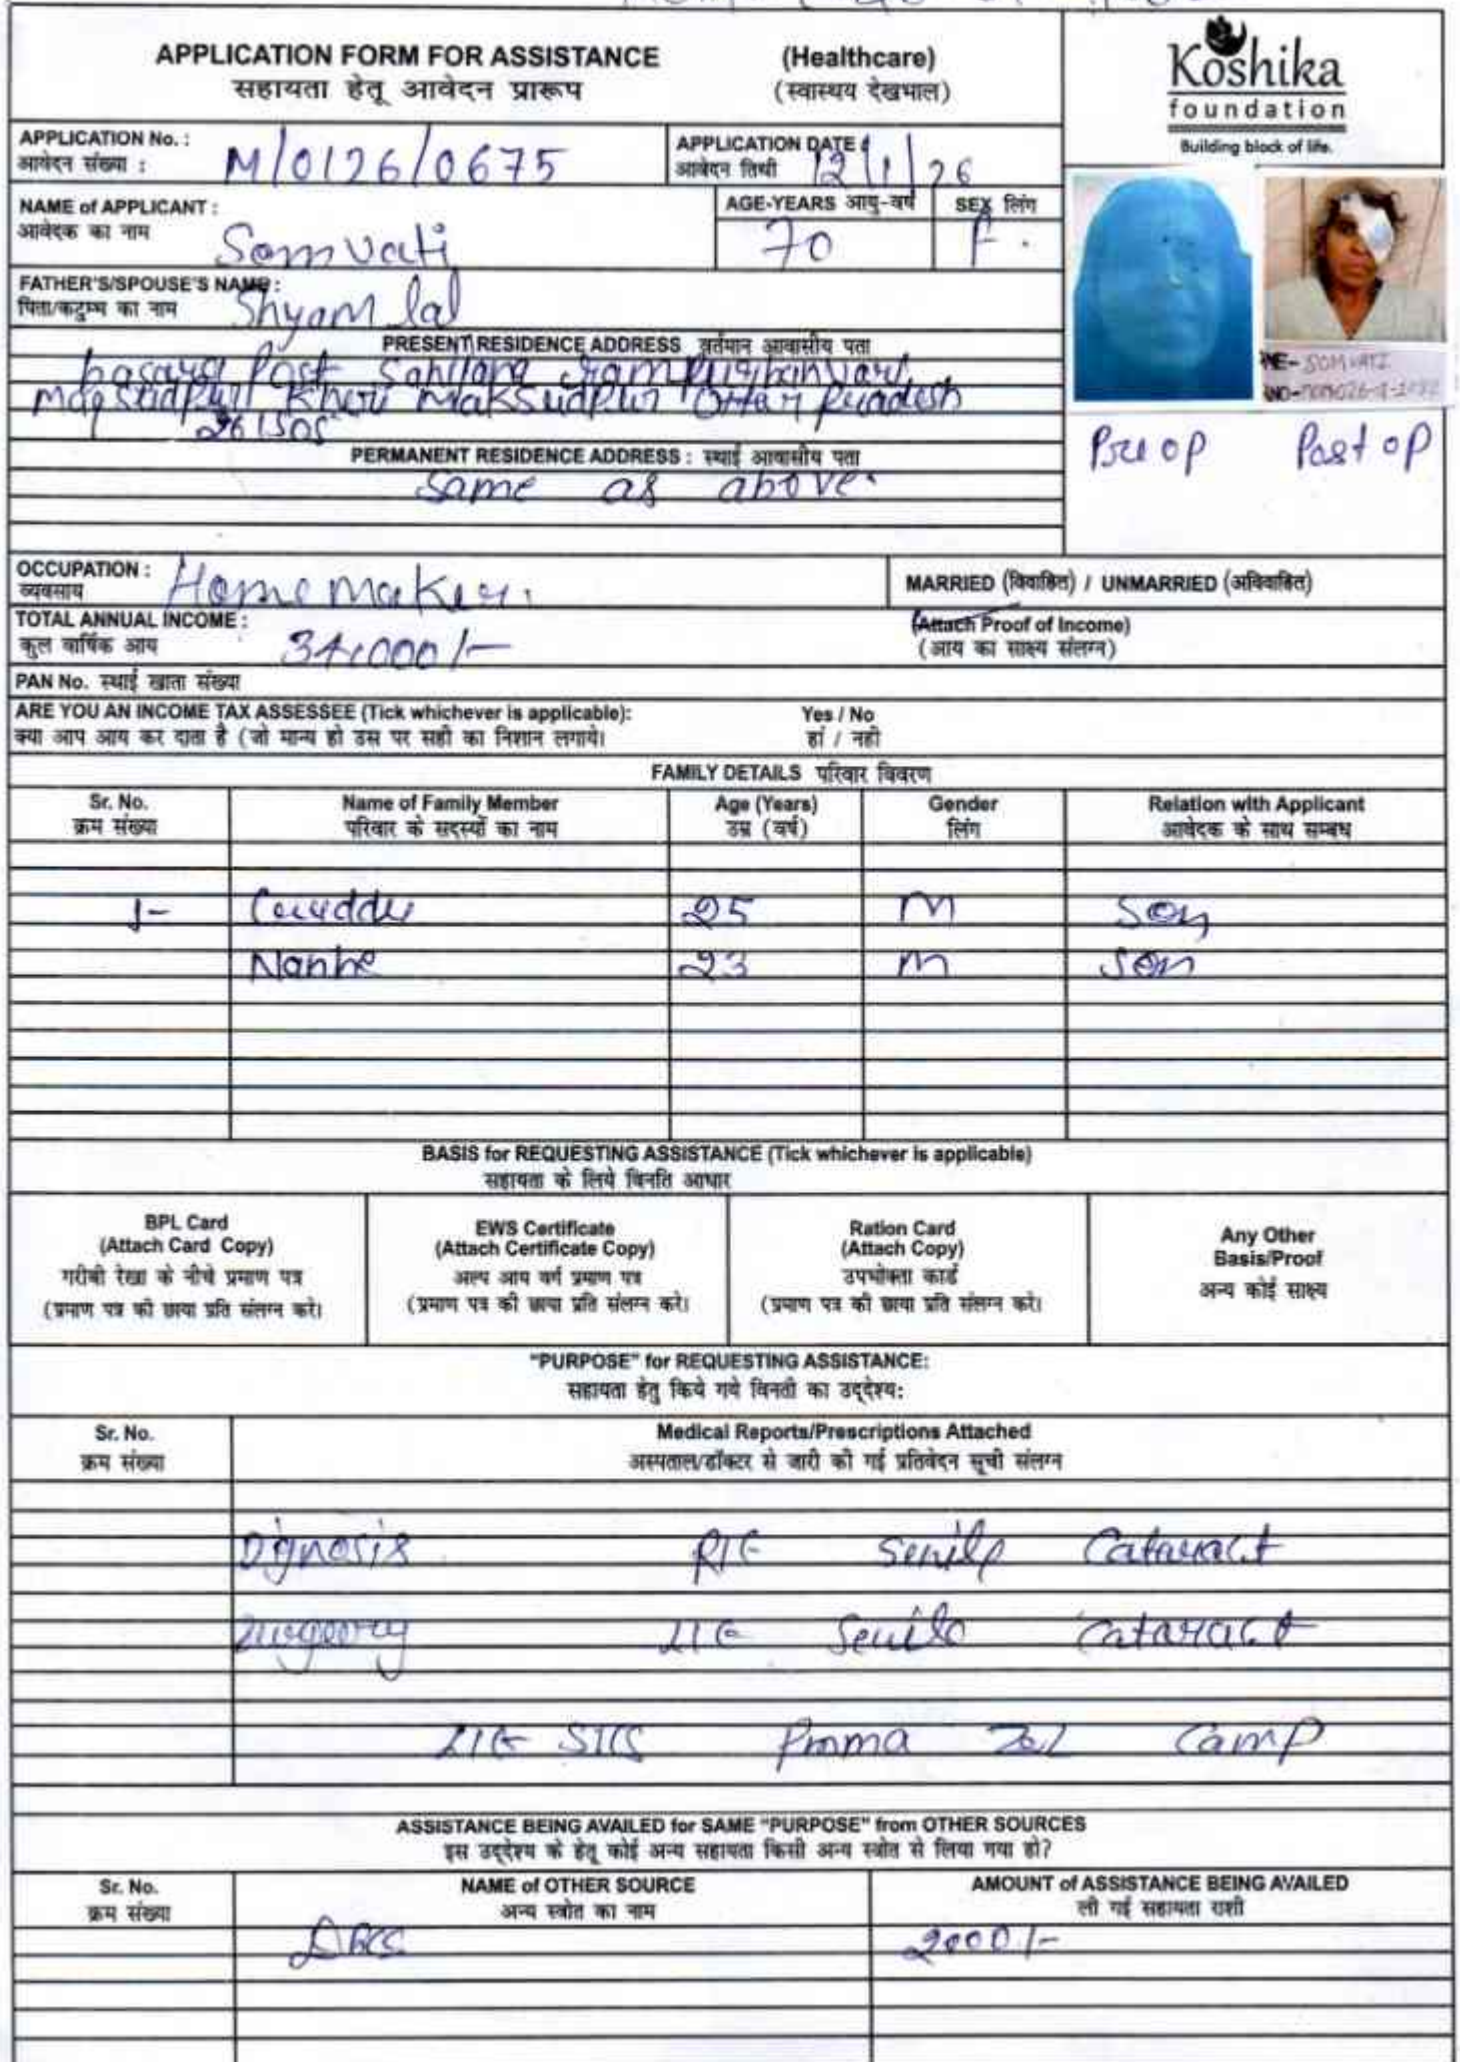 APPLICATION FORM FOR ASSISTANCE (Healthcare)
सहायता हेतू आवेदन प्रारूप (स्वास्थय देखभाल)
Koshika
foundation
Building block of life.
APPLICATION No. : M/0126/0675 APPLICATION DATE : 12/1/26
आवेदन संख्या : आवेदन तिथी
NAME of APPLICANT : Somvati AGE-YEARS आयु-वर्ष 70 SEX लिंग F.
आवेदक का नाम
FATHER'S/SPOUSE'S NAME : Shyam lal
पिता/कटुम्ब का नाम
PRESENT RESIDENCE ADDRESS वर्तमान आवासीय पता
Post
Kheri Maksudpur Uttar Pradesh
261505
PERMANENT RESIDENCE ADDRESS : स्थाई आवासीय पता
Same as above.
NE- SOMVATI
Pre op Post op
OCCUPATION : Home maker.
व्यवसाय
MARRIED (विवाहित) / UNMARRIED (अविवाहित)
TOTAL ANNUAL INCOME : 34,000/-
कुल वार्षिक आय
(Attach Proof of Income)
(आय का साक्ष्य संलग्न)
PAN No. स्थाई खाता संख्या
ARE YOU AN INCOME TAX ASSESSEE (Tick whichever is applicable): Yes / No
क्या आप आय कर दाता है (जो मान्य हो उस पर सही का निशान लगाये। हां / नही
FAMILY DETAILS परिवार विवरण
Sr. No. Name of Family Member Age (Years) Gender Relation with Applicant
क्रम संख्या परिवार के सदस्यों का नाम उम्र (वर्ष) लिंग आवेदक के साथ सम्बध
1- 25 M Son
Nanhe 23 M Son
BASIS for REQUESTING ASSISTANCE (Tick whichever is applicable)
सहायता के लिये विनति आधार
BPL Card
(Attach Card Copy)
गरीबी रेखा के नीचे प्रमाण पत्र
(प्रमाण पत्र की छाया प्रति संलग्न करे।
EWS Certificate
(Attach Certificate Copy)
अल्प आय वर्ग प्रमाण पत्र
(प्रमाण पत्र की छाया प्रति संलग्न करे।
Ration Card
(Attach Copy)
उपभोक्ता कार्ड
(प्रमाण पत्र की छाया प्रति संलग्न करे।
Any Other
Basis/Proof
अन्य कोई साक्ष्य
"PURPOSE" for REQUESTING ASSISTANCE:
सहायता हेतु किये गये विनती का उद्देश्य:
Sr. No. Medical Reports/Prescriptions Attached
क्रम संख्या अस्पताल/डॉक्टर से जारी की गई प्रतिवेदन सूची संलग्न
Dignosis R/E Senile Cataract
Surgeory L/E Senile Cataract
L/E SICS Camp
ASSISTANCE BEING AVAILED for SAME "PURPOSE" from OTHER SOURCES
इस उद्देश्य के हेतू कोई अन्य सहायता किसी अन्य स्त्रोत से लिया गया हो?
Sr. No. NAME of OTHER SOURCE AMOUNT of ASSISTANCE BEING AVAILED
क्रम संख्या अन्य स्त्रोत का नाम ली गई सहायता राशी
2000/-